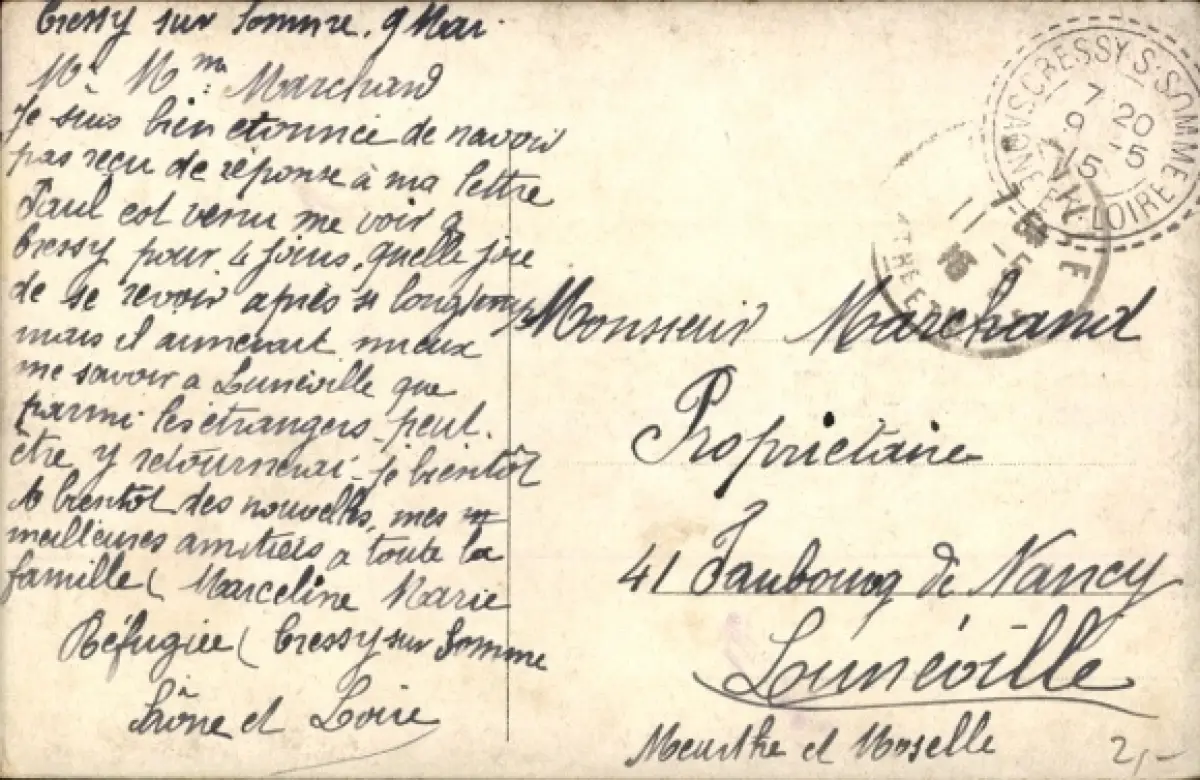 Cressy sur Somme. 9 Mai
Mr Mme Marchand
Je suis bien etonnée de navoir
pas reçu de réponse à ma lettre
Paul est venu me voir a
Cressy pour 4 jours, quelle joie
de se revoir après si longtemps
mais il aimerait mieux
me savoir a Lunéville que
parmi les étrangers, peut.
être y retournerai-je bientôt
A bientôt des nouvelles, mes
meilleures amitiés a toute la
famille ( Marceline Marie
Réfugiée ( Cressy sur Somme
Saône et Loire
Monsieur Marchand
Propriétaire
41 Faubourg de Nancy
Lunéville
Meurthe et Moselle
2,-
CRESSY-S-SOMME
SAONE-ET-LOIRE
7 20
9 -5
15
11 -5
15